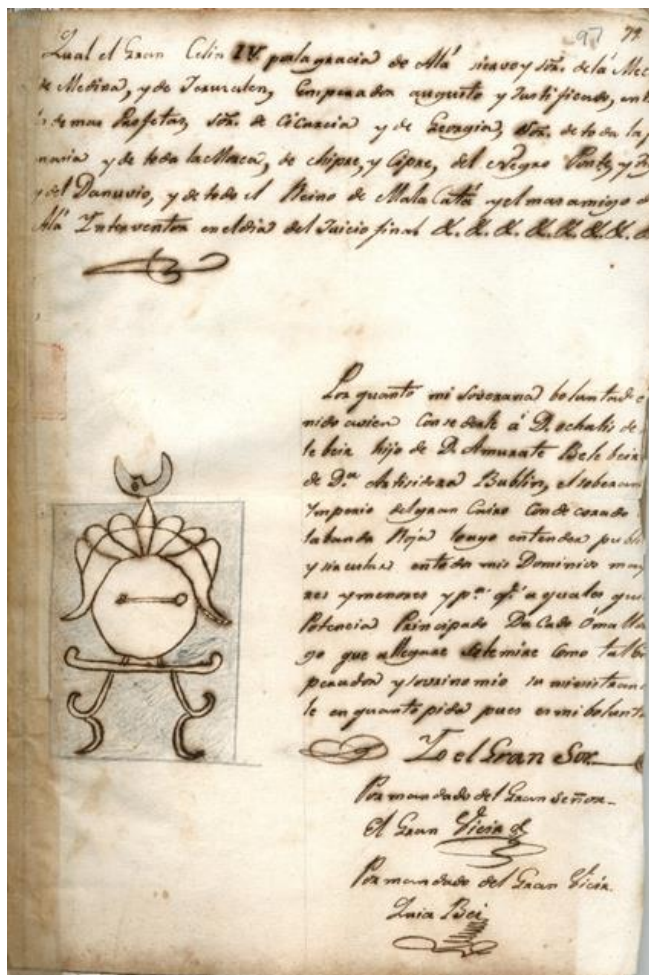 97 79
Qual el Gran Celin IV. por la gracia de Alá siervo y sōr. de la Mec
de Medina, y de Jerusalen, Emperador augusto y Justificado, en
de mas Profetas, sōr. de Circacia y de Georgia, sōr. de toda la
y de toda la de chipre, y Cipre, del Negro Ponto, y
y del Danuvio, y de todo el Reino de Mala Catá y el mas amigo d
Alá Interventor en el dia del Juicio final &. &. &. &. &. &. &.
Por quanto mi soverana boluntad
nido avien Consederle á D.
le beir hijo de D. Amurate Bele beir
de D.ª Bublin, el soberan
Imperio del gran Cairo Condecorado
la banda Roja tengo entender publi
y sircular en toda mis Dominios mayo
res y menores y p.ª q.e a quales qui
Potencia Principado Ducado
go que allegare setemire Como tal
perador y sovrino mio su ministran
le en quanto pida pues es mi bolunta
Yo el Gran Sor.
Por mandado del Gran Señor.
El Gran Vicir
Por mandado del Gran Vicir.
Bei